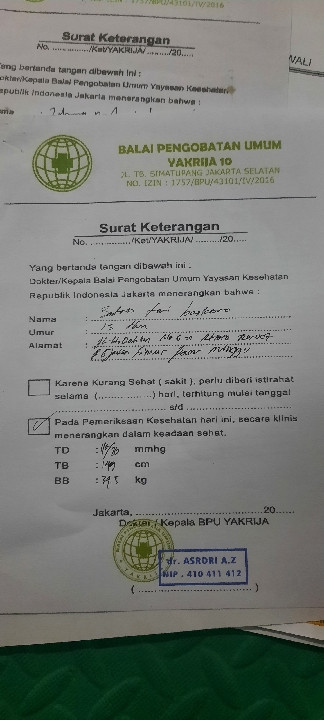 /1757/BPU/43101/IV/2016
Surat Keterangan
No. ............../Ket/YAKRIJA/........./20.....
Yang bertanda tangan dibawah ini :
Dokter/Kepala Balai Pengobatan Umum Yayasan Kesehatan
Republik Indonesia Jakarta menerangkan bahwa :
WALI
BALAI PENGOBATAN UMUM
YAKRIJA 10
JL. TB. SIMATUPANG JAKARTA SELATAN
NO. IZIN : 1757/BPU/43101/IV/2016
Surat Keterangan
No. ............../Ket/YAKRIJA/........./20.....
Yang bertanda tangan dibawah ini :
Dokter/Kepala Balai Pengobatan Umum Yayasan Kesehatan
Republik Indonesia Jakarta menerangkan bahwa :
Nama :
Umur :
Alamat :
Karena Kurang Sehat ( sakit ), perlu diberi istirahat
selama (................) hari, terhitung mulai tanggal
.............................. s/d ..............................
Pada Pemeriksaan Kesehatan hari ini, secara klinis
menerangkan dalam keadaan sehat.
TD : mmhg
TB : cm
BB : kg
Jakarta, ........................................20.....
Dokter / Kepala BPU YAKRIJA
dr. ASRORI A.Z
NIP . 410 411 412
( ........................................ )